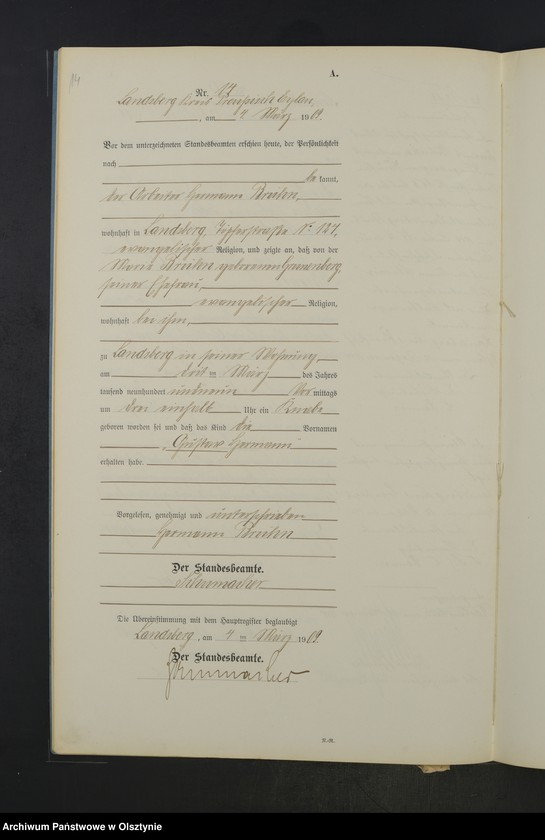 14
A.
Nr. 14
Landsberg Kreis Preußisch Eylau,
, am 4 März 1909.
Vor dem unterzeichneten Standesbeamten erschien heute, der Persönlichkeit
nach
be kannt,
der Arbeiter Hermann
wohnhaft in Landsberg, Töpferstraße No 127,
evangelischer Religion, und zeigte an, daß von der
Maria geborenen
seiner Ehefrau,
evangelischer Religion,
wohnhaft bei ihm,
zu Landsberg in seiner Wohnung,
am drit ten März des Jahres
tausend neunhundert und neun Vor mittags
um drei einhalb Uhr ein Knabe
geboren worden sei und daß das Kind die Vornamen
Gustav Hermann
erhalten habe.
Vorgelesen, genehmigt und unterschrieben
Hermann
Der Standesbeamte.
Schumacher
Die Übereinstimmung mit dem Hauptregister beglaubigt
Landsberg, am 4 ten März 1909.
Der Standesbeamte.
Schumacher
Archiwum Państwowe w Olsztynie